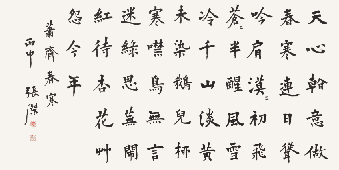 天心斡意做
春寒連日聳
吟肩漠〻初飛
蒼〻半醒風雪
冷千山淡黄
未染鵝兒柳
寒噤鳥無言
迷綠思蕪鬧
紅待杏花艸
忽今年
蕭齋春寒
丙申 張傑